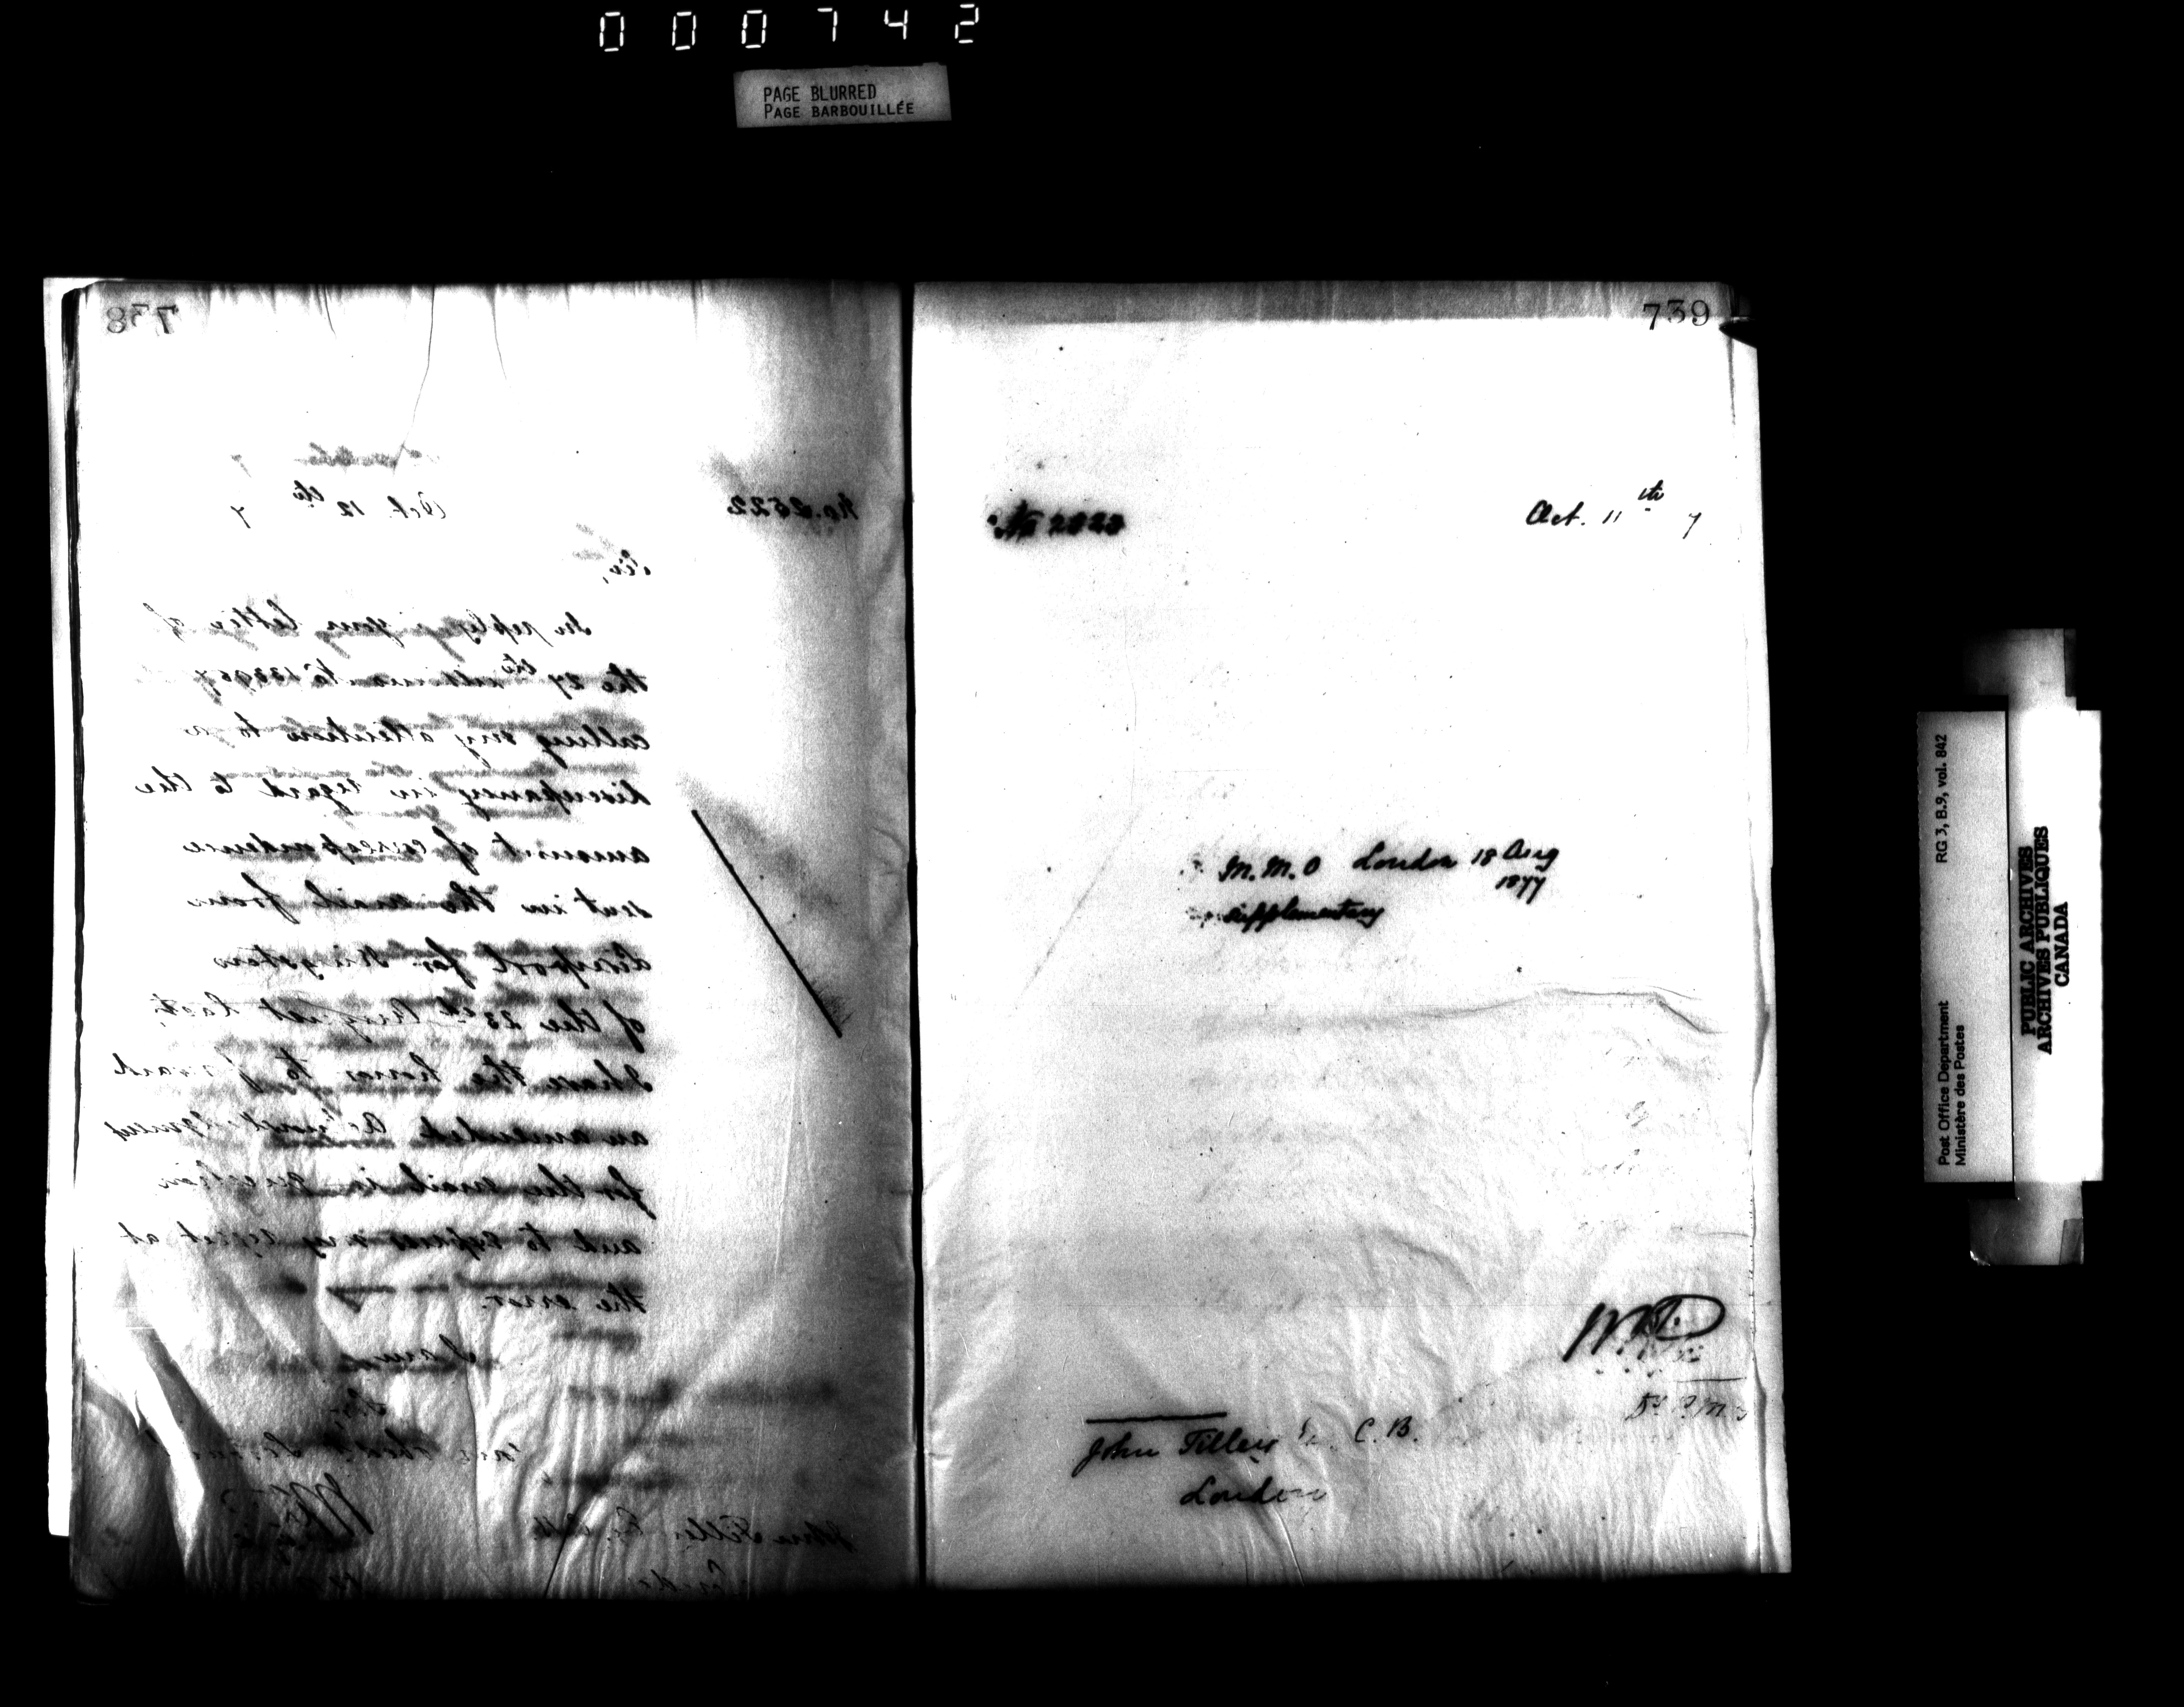 000742
PAGE BLURRED
PAGE BARBOUILLÉE
738
No. 2522
Oct. 12th 7
Sir,
In reply to your letter of
the 27th ultimo No 133967
calling my attention to a
discrepancy in regard to the
amount of correspondence
sent in the mail from
Liverpool for Kingston
of the 23rd August last,
I have the honor to forward
an amended
for the mail in question
and to express my regret at
the error.
I am,
Sir,
Your Obedt. Servant
John Tilley Esq. C.B.
London
739
Oct. 11th 7
M.M.O London 18 Aug
1877
supplementary
John Tilley C.B.
London
Post Office Department
Ministère des Postes
RG 3, B.9, vol. 842
PUBLIC ARCHIVES
ARCHIVES PUBLIQUES
CANADA